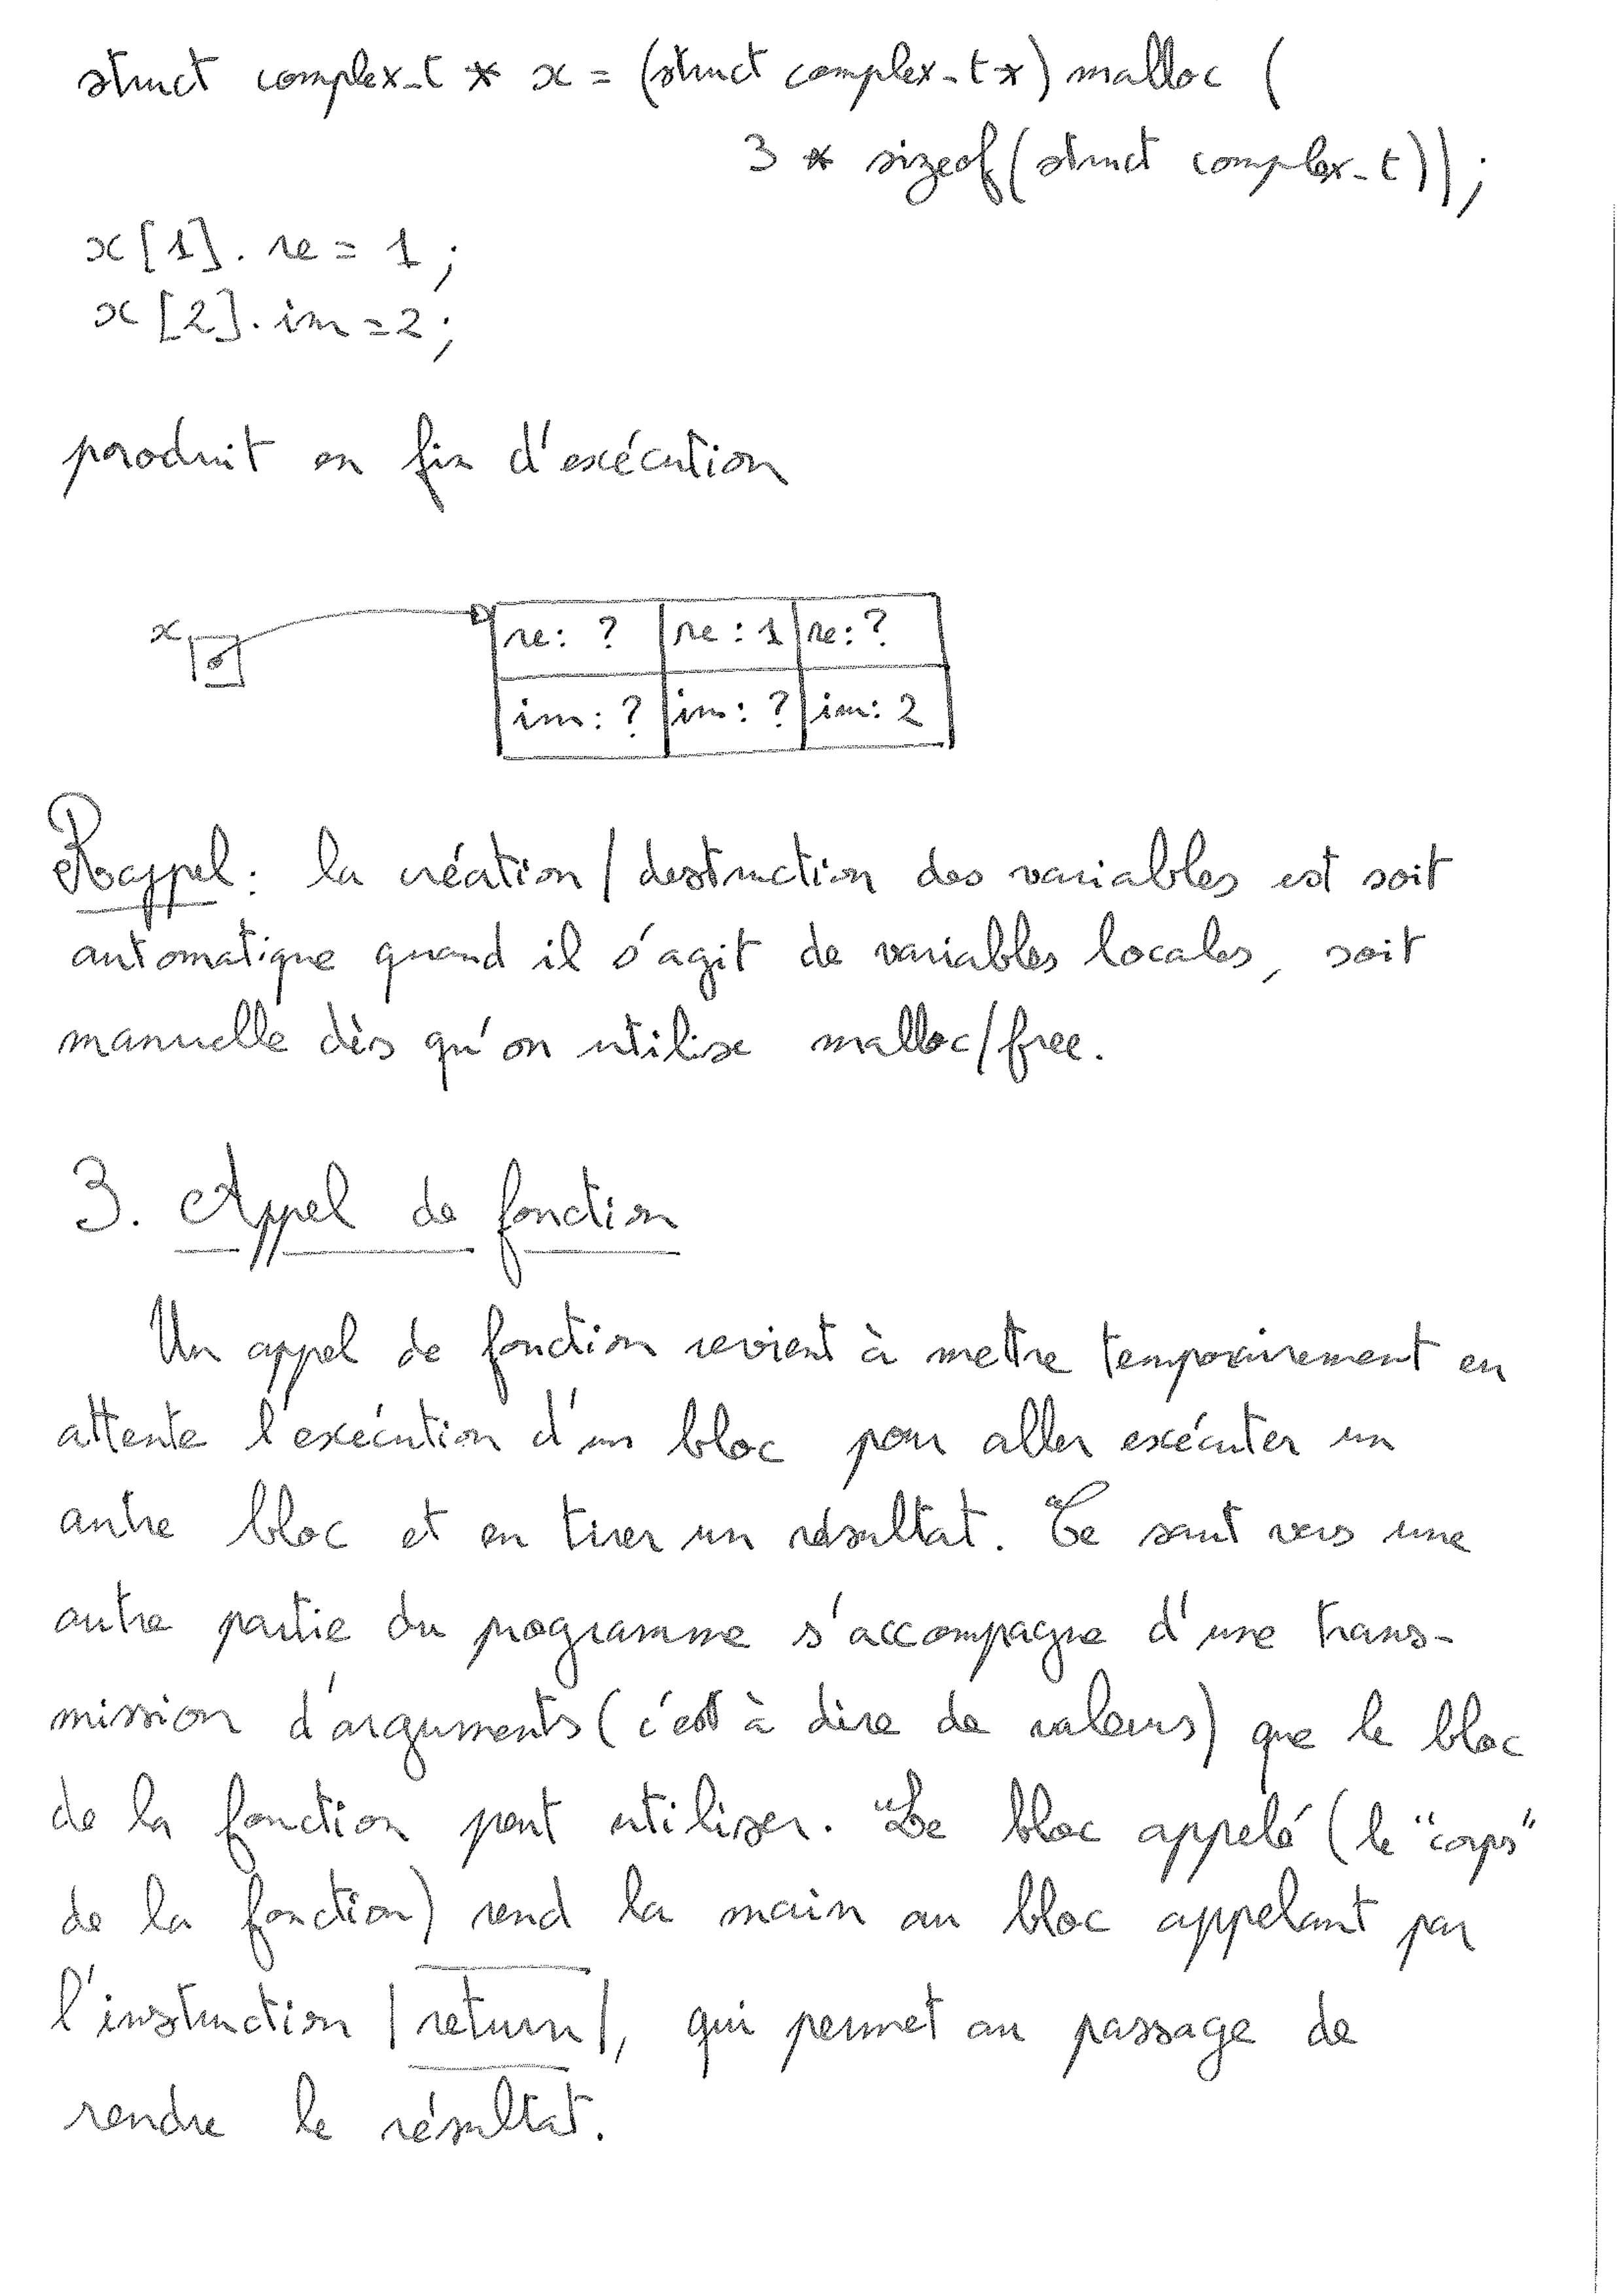 struct complex_t * x = (struct complex_t *) malloc (
3 * sizeof(struct complex_t));
x[1].re = 1;
x[2].im = 2;
produit en fin d'exécution
x
re: ? re: 1 re: ?
im: ? im: ? im: 2
Rappel : la création / destruction des variables est soit
automatique quand il s'agit de variables locales, soit
manuelle dès qu'on utilise malloc/free.
3. Appel de fonction
Un appel de fonction revient à mettre temporairement en
attente l'exécution d'un bloc pour aller exécuter un
autre bloc et en tirer un résultat. Ce saut vers une
autre partie du programme s'accompagne d'une trans-
mission d'arguments (c'est à dire de valeurs) que le bloc
de la fonction peut utiliser. Le bloc appelé (le "corps"
de la fonction) rend la main au bloc appelant par
l'instruction return, qui permet au passage de
rendre le résultat.